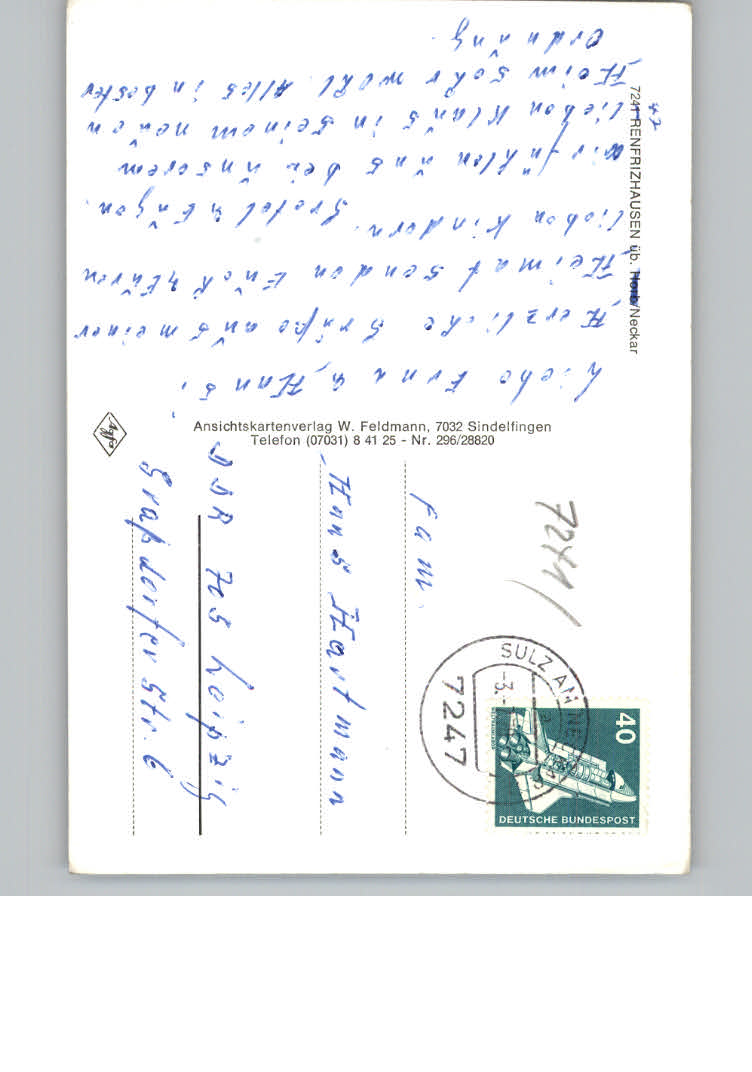 7241 RENFRIZHAUSEN üb. Horb/Neckar
47
Liebe Erna u. Hans,
Herzliche Grüße aus meiner
Heimat senden Euch Euren
lieben Kindern. Gretel u. Eugen.
Wir fühlen uns bei unserem
lieben Klaus in seinem neuen
Heim sehr wohl. Alles in bester
Ordnung.
Agfa
Ansichtskartenverlag W. Feldmann, 7032 Sindelfingen
Telefon (07031) 8 41 25 - Nr. 296/28820
7241/
SULZ AM NECKAR
-3.
7247
40
DEUTSCHE BUNDESPOST
Fam.
Hans Hartmann
DDR 705 Leipzig
Graßdorfer Str. 6